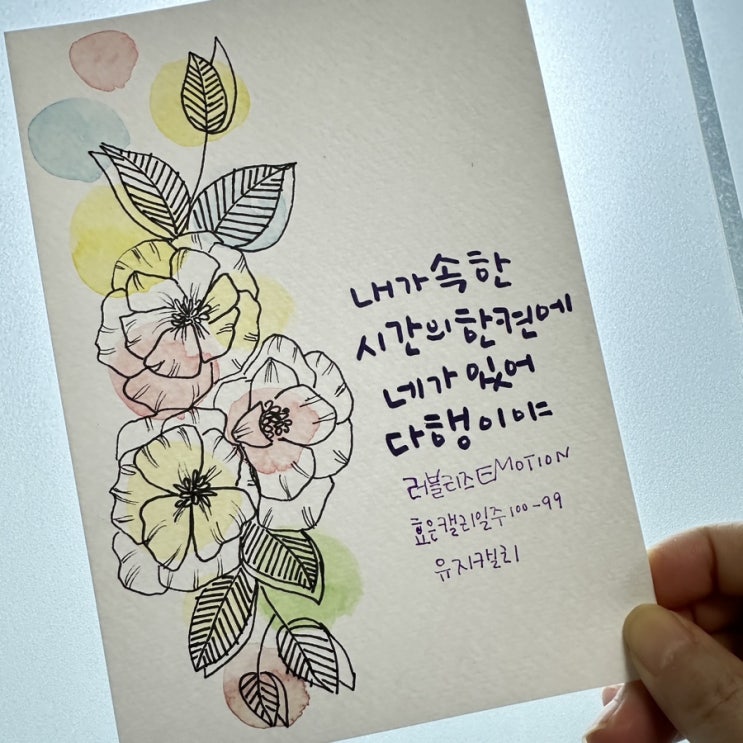 내가 속한
시간의 한켠에
네가 있어
다행이야
러블리즈 EMOTION
효은캘리일주 100-99
유지캘리